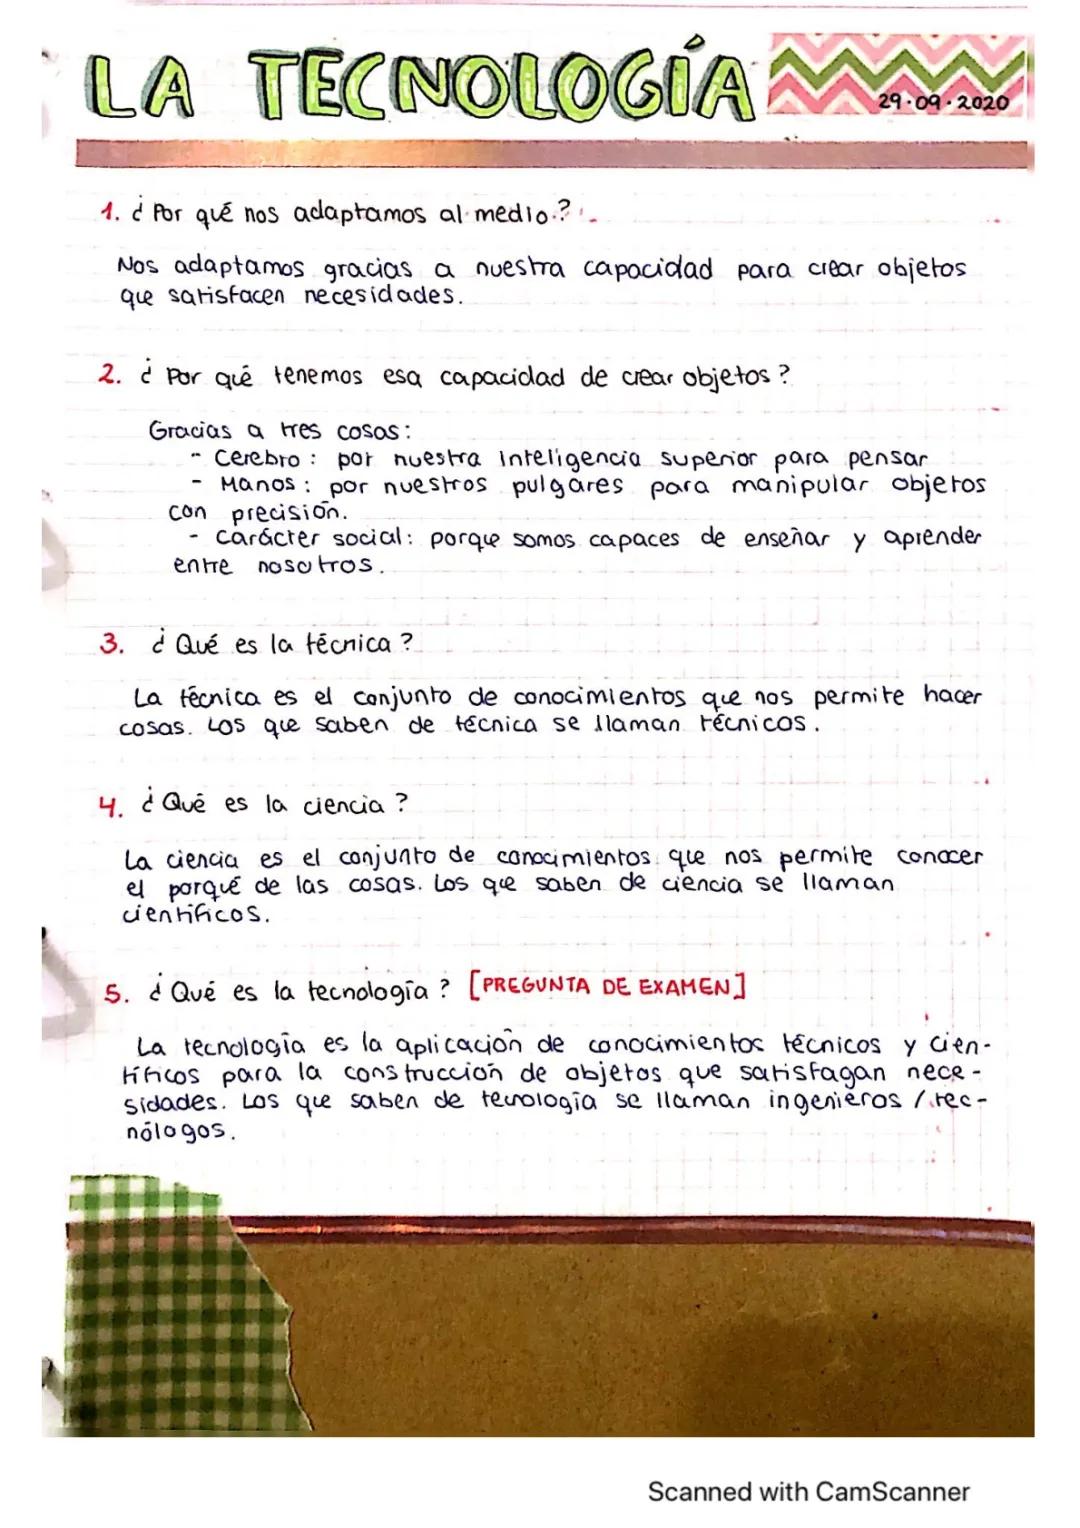 LA TECNOLOGÍA
29·09·2020
1. ¿Por qué nos adaptamos al medio?
Nos adaptamos gracias a nuestra capacidad para crear objetos
que satisfacen necesidades.
2. ¿Por qué tenemos esa capacidad de crear objetos?
Gracias a tres cosas:
- Cerebro: por nuestra inteligencia superior para pensar
- Manos: por nuestros pulgares para manipular objetos
con precisión.
- Carácter social: porque somos capaces de enseñar y aprender
entre nosotros.
3. ¿Qué es la técnica?
La técnica es el conjunto de conocimientos que nos permite hacer
cosas. Los que saben de técnica se llaman técnicos.
4. ¿Qué es la ciencia?
La ciencia es el conjunto de conocimientos que nos permite conocer
el porqué de las cosas. Los que saben de ciencia se llaman
científicos.
5. ¿Qué es la tecnología? [PREGUNTA DE EXAMEN]
La tecnología es la aplicación de conocimientos técnicos y cien-
tíficos para la construcción de objetos que satisfagan nece-
sidades. Los que saben de tecnología se llaman ingenieros / tec-
nólogos.
Scanned with CamScanner